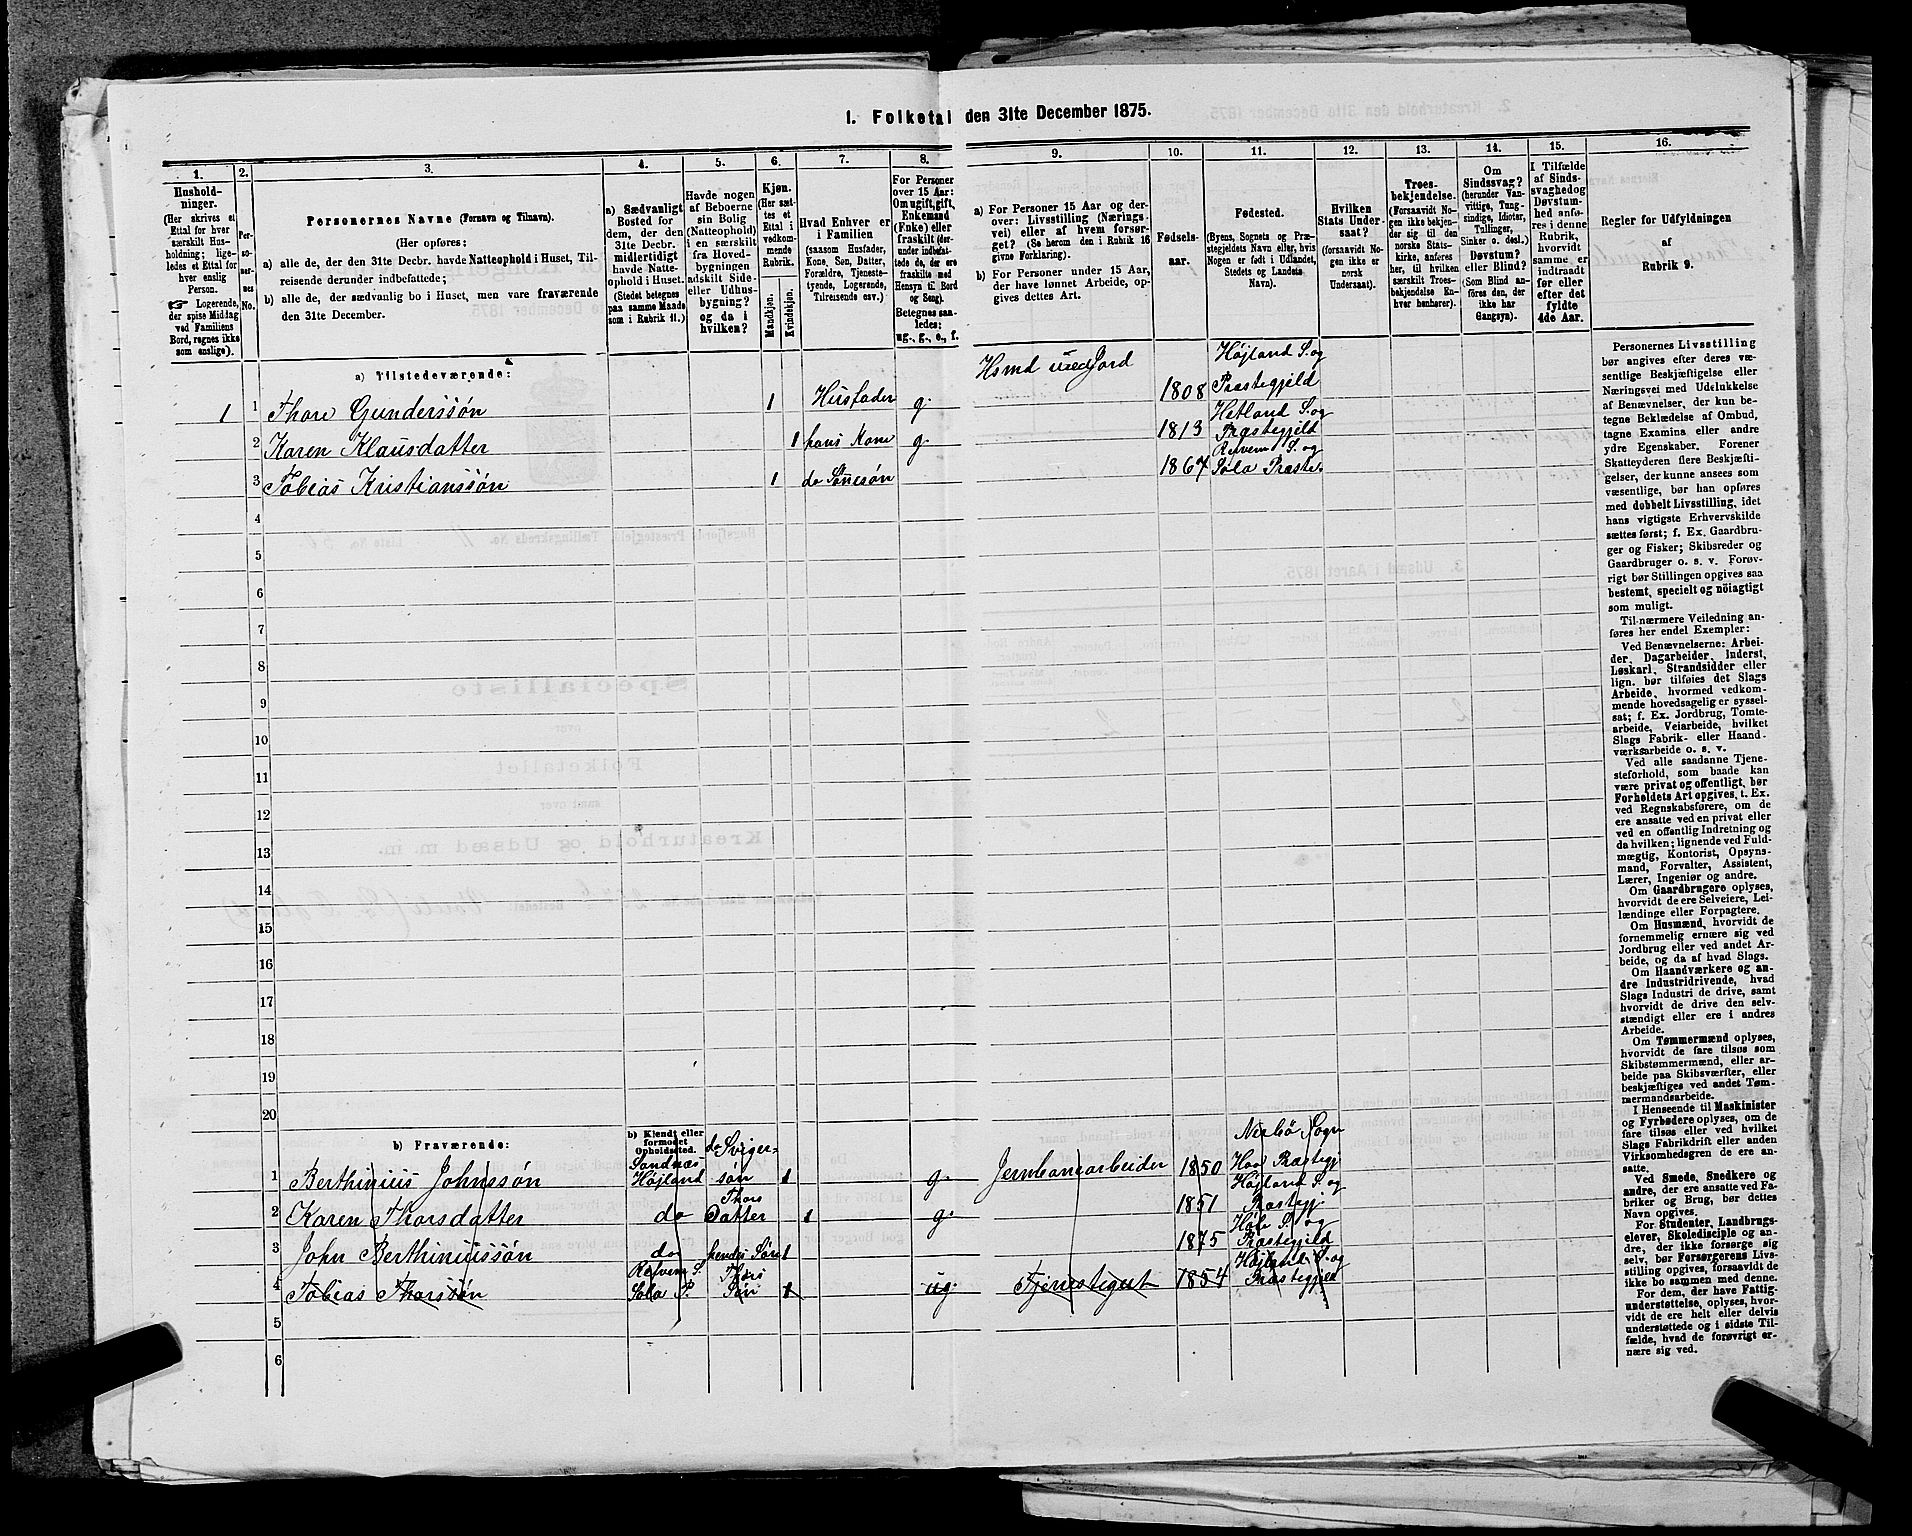 1. Folketal den 31te December 1875.
1.
Hushold-
ninger.
(Her skrives et
Ettal for hver
særskilt Hus-
holdning; lige-
ledes et Ettal for
hver enslig
Person.
☞ Logerende,
der spise Middag
ved Familiens
Bord, regnes ikke
som enslige).
2.
Per-
soner-
nes
No.
3.
Personernes Navne (Fornavn og Tilnavn).
(Her opføres:
a) alle de, der den 31te Decbr. havde Natteophold i Huset, Til-
reisende derunder indbefattede;
b) alle de, der sædvanlig bo i Huset, men vare fraværende
den 31te December.
4.
a) Sædvanligt
Bosted for
dem, der den
31te Decbr.
midlertidigt
havde Natte-
ophold i Huset.
(Stedet betegnes
paa samme Maade
som i Rubrik 11.)
5.
Havde nogen
af Beboerne
sin Bolig
(Natteophold)
i en særskilt
fra Hoved-
bygningen
adskilt Side-
eller Udhus-
bygning?
og da i
hvilken?
6.
Kjøn.
(Her sæt-
tes et
Ettal i
vedkom-
mende
Rubrik.
Mandkjøn.
Kvindekjøn.
7.
Hvad Enhver er
i Familien
(saasom Husfader,
Kone, Søn, Datter,
Forældre, Tjeneste-
tyende, Logerende,
Tilreisende osv.)
8.
For Personer
over 15 Aar:
Om ugift, gift,
Enkemand
(Enke) eller
fraskilt (der-
under indbefat-
tede de, der ere
fraskilte med
Hensyn til Bord
og Seng).
Betegnes saa-
ledes:
ug., g., e., f.
9.
a) For Personer 15 Aar og der-
over: Livsstilling (Nærings-
vei) eller af hvem forsør-
get? (Se herom den i Rubrik 16
givne Forklaring).
b) For Personer under 15 Aar,
der have lønnet Arbeide, op-
gives dettes Art.
10.
Fødsels-
aar.
11.
Fødested.
(Byens, Sognets og Præ-
stegjeldets Navn eller, hvis
Nogen er født i Udlandet,
Stedets og Landets
Navn).
12.
Hvilken
Stats Under-
saat?
(forsaavidt No-
gen ikke er
norsk
Undersaat).
13.
Troes-
bekjendelse.
(Forsaavidt No-
gen ikke bekjen-
der sig til den
norske Stats-
kirke, anføres
her, til hvilken
særskilt Troes-
bekjendelse En-
hver henhører).
14.
Om
Sindssvag?
(herunder Van-
vittige, Tung-
sindige, Idioter,
Tullinger,
Sinker o. desl.)
Døvstum?
eller Blind?
(Som Blind an-
føres den, der
ikke har
Gangsyn).
15.
I Tilfælde
af Sinds-
svaghed og
Døvstum-
hed anfø-
res i denne
Rubrik,
hvorvidt
samme er
indtraadt
før eller
efter det
fyldte
4de Aar.
16.
Regler for Udfyldningen
af
Rubrik 9.
a) Tilstedeværende:
1 1 Thore Gunderssön 1 Husfader g. Hsmd med Jord 1808 Højland S. og Præstegjeld
2 Karen Klausdatter 1 hans Kone g. 1813 Hetland S. og Præstegjeld
3 Tobias Kristianssön 1 do Sönesön 1867 S. og Sola Præste.
4
5
6
7
8
9
10
11
12
13
14
15
16
17
18
19
20
b) Fraværende:
b) Kjendt eller
formodet
Opholdssted.
1 Berthinius Johnssön Sandnæs Højland do Svigersön 1 g. Jernbanearbeider 1850 Nærbö Sogn Haa Præstegj
2 Karen Thorsdatter do Thors Datter 1 g. 1851 Højland S. og Præstegj
3 John Berthiniussön do hendes Sön 1 1875 Höle S. og Præstegjeld
4 Tobias Thorssön S. Sola P. Thors Sön 1 ug. Tjenestegut 1854 Højland S. og Præstegjeld
5
6
Personernes Livsstilling
bør angives efter deres væ-
sentlige Beskjæftigelse eller
Næringsvei med Udelukkelse
af Benævnelser, der kun be-
tegne Beklædelse af Ombud,
tagne Examina eller andre
ydre Egenskaber. Forener
Skatteyderen flere Beskjæfti-
gelser, der kunne ansees som
væsentlige, bør han opføres
med dobbelt Livsstilling, idet
hans vigtigste Erhvervskilde
sættes først; f. Ex. Gaardbru-
ger og Fisker; Skibsreder og
Gaardbruger o. s. v. Forøv-
rigt bør Stillingen opgives saa
bestemt, specielt og nöiagtigt
som muligt.
Til nærmere Veiledning an-
føres her endel Exempler:
Ved Benævnelserne: Arbei-
der, Dagarbeider, Inderst,
Løskarl, Strandsidder eller
lign. bør tilføies det Slags
Arbeide, hvormed vedkom-
mende hovedsagelig er syssel-
sat; f. Ex. Jordbrug, Tomte-
arbeide, Veiarbeide, hvilket
Slags Fabrik- eller Haand-
værksarbeide o. s. v.
Ved alle saadanne Tjene-
steforhold, som baade kan
være privat og offentligt, bør
Forholdets Art opgives, t. Ex.
ved Regnskabsførere, om de
ere ansatte ved en privat eller
ved en offentlig Indretning og
da hvilken; lignende ved Fuld-
mægtig, Kontorist, Opsyns-
mand, Forvalter, Assistent,
Lærer, Ingeniør og andre.
Om Gaardbrugere oplyses,
hvorvidt de ere Selveiere, Lei-
lændinge eller Forpagtere.
Om Husmænd, hvorvidt de
fornemmelig ernære sig ved
Jordbrug eller ved andet Ar-
beide, og da af hvad Slags.
Om Haandværkere og an-
dre Industridrivende, hvad
Slags Industri de drive, samt
hvorvidt de drive den selv-
stændigt eller ere i andres
Arbeide.
Om Tømmermænd oplyses,
hvorvidt de fare tilsøs som
Skibstømmermænd, eller ar-
beide paa Skibsværfter, eller
beskjæftiges ved andet Tøm-
mermandsarbeide.
I Henseende til Maskinister
og Fyrbødere oplyses, om de
fare tilsøs eller ved hvilket
Slags Fabrikdrift eller anden
Virksomhedsgren de ere an-
satte.
Ved Smede, Snedkere og
andre, der ere ansatte ved Fa-
briker og Brug, bør dettes
Navn opgives.
For Studenter, Landbrugs-
elever, Skoledisciple og an-
dre, der ikke forsørge sig
selv, bør Forsørgerens Livs-
stilling opgives, forsaavidt de
ikke bo sammen med denne.
For dem, der have Fattig-
understøttelse, oplyses, hvor-
vidt de ere helt eller delvis
understøttede og i sidste Til-
fælde, hvad de forøvrigt er-
nære sig ved.